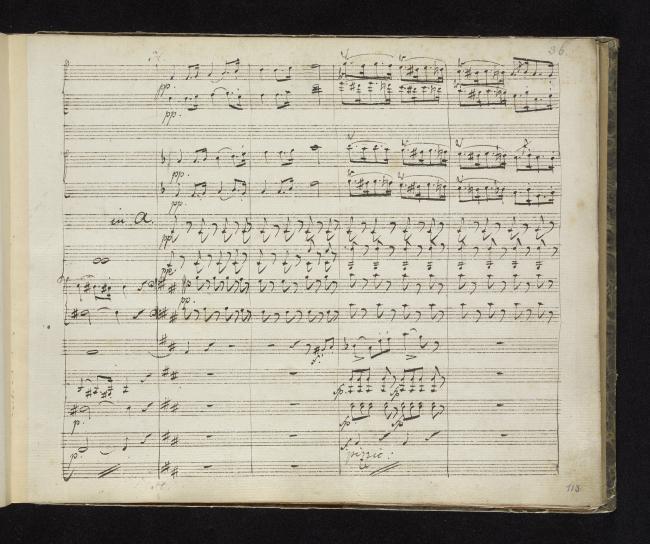 36
pp.
pp.
pp.
pp.
in A.
pp.
pp.
pp.
fp
fp
fp
fp
p.
p.
pizzic:
113